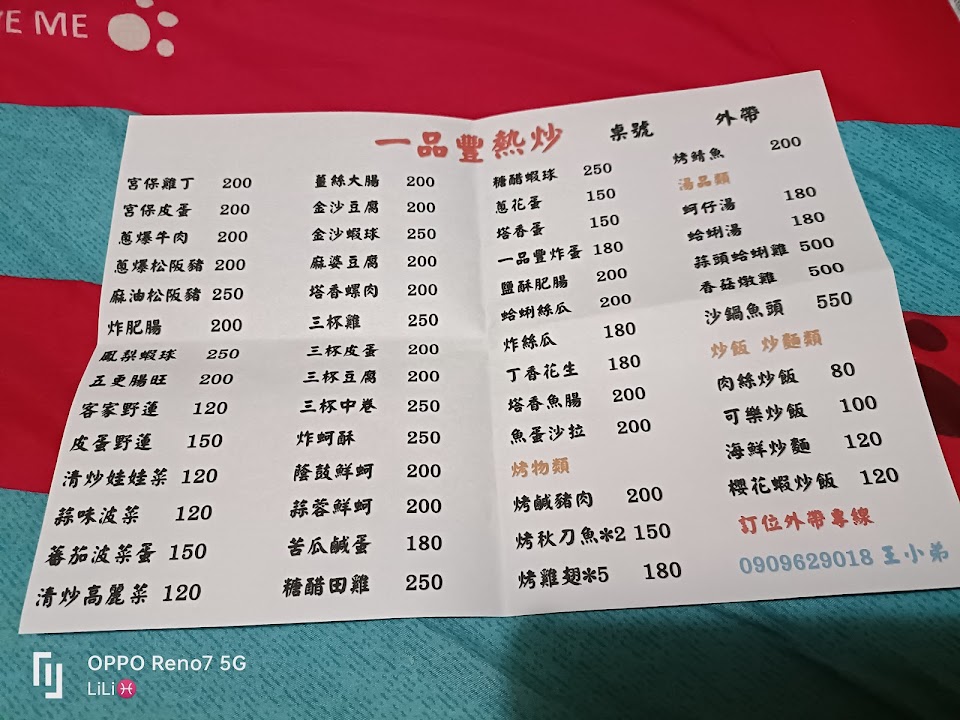 VE ME
一品豐熱炒
桌號
外帶
宮保雞丁 200
宮保皮蛋 200
蔥爆牛肉 200
蔥爆松阪豬 200
麻油松阪豬 250
炸肥腸 200
鳳梨蝦球 250
五更腸旺 200
客家野蓮 120
皮蛋野蓮 150
清炒娃娃菜 120
蒜味波菜 120
蕃茄波菜蛋 150
清炒高麗菜 120
薑絲大腸 200
金沙豆腐 200
金沙蝦球 250
麻婆豆腐 200
塔香螺肉 200
三杯雞 250
三杯皮蛋 200
三杯豆腐 200
三杯中卷 250
炸蚵酥 250
蔭鼓鮮蚵 200
蒜蓉鮮蚵 200
苦瓜鹹蛋 180
糖醋田雞 250
糖醋蝦球 250
蔥花蛋 150
塔香蛋 150
一品豐炸蛋 180
鹽酥肥腸 200
蛤蜊絲瓜 200
炸絲瓜 180
丁香花生 180
塔香魚腸 200
魚蛋沙拉 200
烤物類
烤鹹豬肉 200
烤秋刀魚*2 150
烤雞翅*5 180
烤鯖魚 200
湯品類
蚵仔湯 180
蛤蜊湯 180
蒜頭蛤蜊雞 500
香菇燉雞 500
沙鍋魚頭 550
炒飯 炒麵類
肉絲炒飯 80
可樂炒飯 100
海鮮炒麵 120
櫻花蝦炒飯 120
訂位外帶專線
0909629018 王小弟
OPPO Reno7 5G
LiLi♓